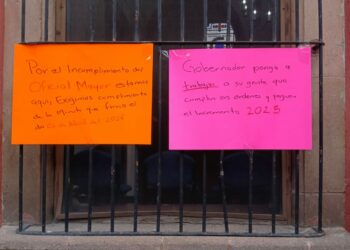 Por el Incumplimiento del
Oficial Mayor estamos
aquí, Exigimos cumplimiento
de la Minuta que firmó el
día de del
Gobernador ponga a
trabajar a su gente que
cumplan sus ordenes y paguen
el Incremento 2025